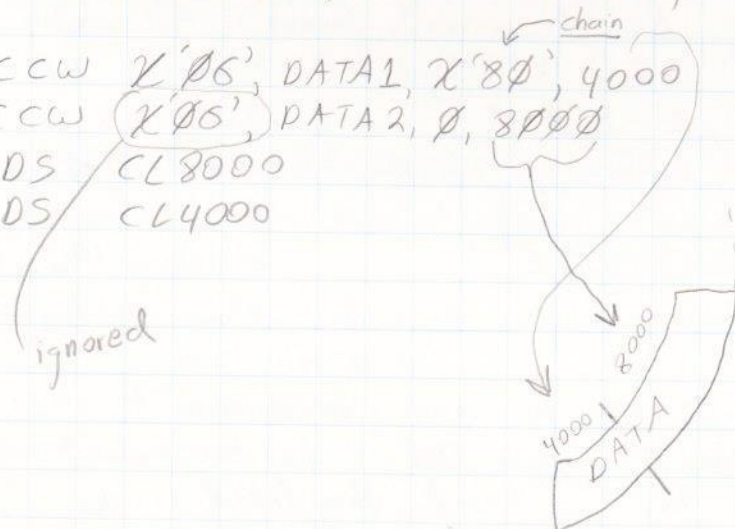 chain
CCW X'06', DATA1, X'80', 4000
CCW X'06', DATA2, 0, 8000
DS CL8000
DS CL4000
ignored
8000
4000
DATA